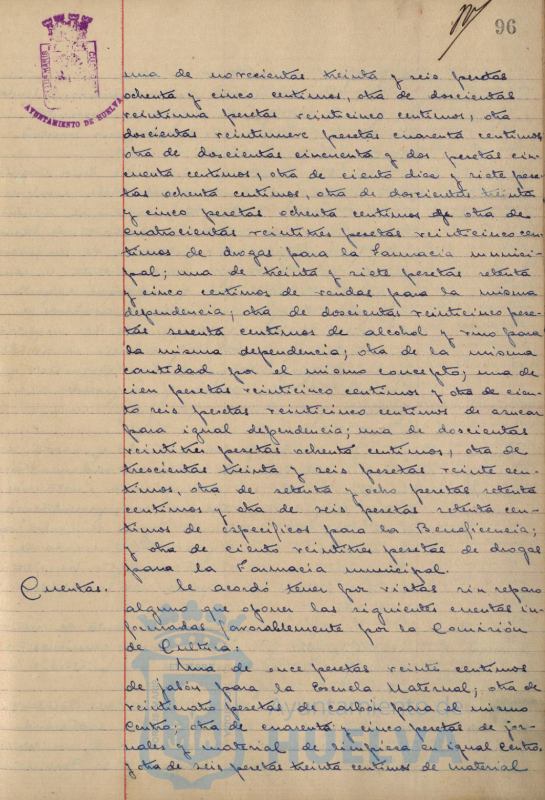 96
AYUNTAMIENTO DE HUELVA
una de novecientas treinta y seis pesetas
ochenta y cinco centimos, otra de doscientas
veintiuna pesetas veinticinco centimos, otra
doscientas veintinueve pesetas cuarenta centimos
otra de doscientas cincuenta y dos pesetas cin-
cuenta centimos, otra de ciento diez y siete pese-
tas ochenta centimos, otra de doscientas treinta
y cinco pesetas ochenta centimos y otra de
cuatrocientas veintitres pesetas veinticinco cen-
timos de drogas para la Farmacia munici-
pal; una de treinta y siete pesetas setenta
y cinco centimos de vendas para la misma
dependencia; otra de doscientas veinticinco pese-
tas sesenta centimos de alcohol y vino para
la misma dependencia; otra de la misma
cantidad por el mismo concepto; una de
cien pesetas veinticinco centimos y otra de cien-
to seis pesetas veinticinco centimos de azucar
para igual dependencia; una de doscientas
veintitres pesetas ochenta centimos, otra de
trescientas treinta y seis pesetas veinte cen-
timos, otra de setenta y ocho pesetas setenta
centimos y otra de seis pesetas setenta cen-
timos de especificos para la Beneficencia;
y otra de ciento veintitres pesetas de drogas
para la Farmacia municipal.
Cuentas. Se acordó tener por vistas sin reparo
alguno que oponer las siguientes cuentas in-
formadas favorablemente por la Comisión
de Cultura:
Una de once pesetas veinte centimos
de jabón para la Escuela Maternal; otra de
veinticuatro pesetas de carbón para el mismo
Centro; otra de cuarenta y cinco pesetas de jor-
nales y material de limpieza en igual Centro,
y otra de seis pesetas treinta centimos de material
HUELVA